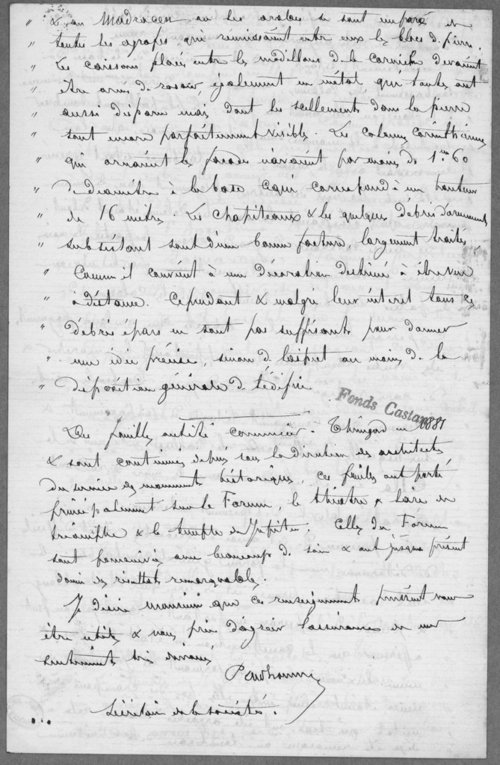 " & au Madracen où les arabes se sont emparé et
" toutes les agrafes qui réunissaient entre eux les blocs de pierre.
" Les caissons placés entre les modillons de la corniche devaient
" être ornés de rosaces également en métal, qui toutes ont
" aussi disparu mais dont les scellements dans la pierre
" sont encore parfaitement visibles. Les colonnes corinthiennes
" qui ornaient la façade n'avaient pas moins de 1m60
" de diamètre à la base ce qui correspond à une hauteur
" de 16 mètres. Les chapiteaux & les quelques débris d'ornements
" subsistant sont d'une bonne facture, largement traités
" comme il convient à une décoration destinée à être vue
" à distance. Cependant & malgré leur intérêt tous ces
" débris épars ne sont pas suffisants pour donner
" une idée précise, sinon de l'aspect au moins de la
" disposition générale de l'édifice
Fonds Castan
Des fouilles ont été commencées à Thimgad en 1881
& sont continuées depuis sous la direction des architectes
du service des monuments historiques, ces fouilles ont porté
principalement sur le Forum, le théâtre, l'arc de
triomphe & le temple de Jupiter. Celles du Forum
sont poursuivies avec beaucoup de soin & ont jusqu'à présent
donné des résultats remarquables.
Je désire Monsieur que ces renseignements puissent vous
être utiles & vous prie d'agréer l'assurance de mes
sentiments très dévoués
Secrétaire de la société.